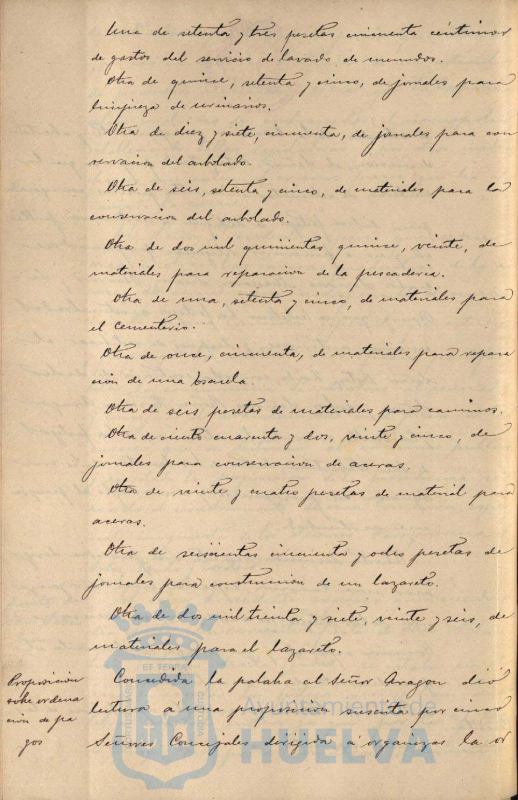 Una de setenta y tres pesetas cincuenta céntimos
de gastos del servicio de lavado de inmundos.
Otra de quince, setenta y cinco, de jornales para
limpieza de urinarios.
Otra de diez y siete, cincuenta, de jornales para con
servacion del arbolado.
Otra de seis, setenta y cinco, de materiales para la
conservacion del arbolado.
Otra de dos mil quinientas quince, veinte, de
materiales para reparacion de la pescaderia.
Otra de una, setenta y cinco, de materiales para
el cementerio.
Otra de once, cincuenta, de materiales para repara
ción de una Escuela.
Otra de seis pesetas de materiales para caminos.
Otra de ciento cuarenta y dos, veinte y cinco, de
jornales para conservacion de aceras.
Otra de veinte y cuatro pesetas de material para
aceras.
Otra de seiscientas cincuenta y ocho pesetas de
jornales para construccion de un lazareto.
Otra de dos mil treinta y siete, veinte y seis, de
materiales para el lazareto.
Proposición
sobre ordena
ción de pa
gos
Concedida la palabra al Señor Aragon dió
lectura á una proposicion suscrita por cinco
Señores Concejales dirigida á organizar la or
Ayuntamiento de
HUELVA